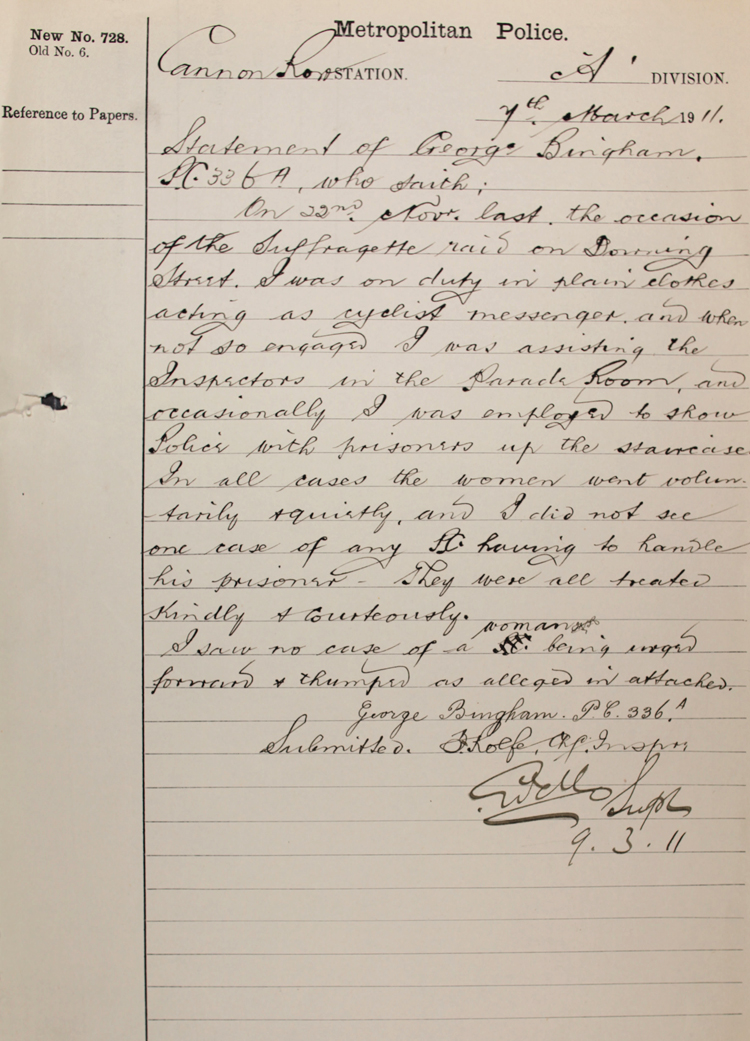 New No. 728.
Old No. 6.
Reference to Papers.
Metropolitan Police.
Cannon Row STATION. 'A' DIVISION.
7th March 1911.
Statement of George Bingham.
P.C. 336 A, who saith;
On 22nd Novr. last, the occasion
of the Suffragette raid on Downing
Street. I was on duty in plain clothes
acting as cyclist messenger, and when
not so engaged I was assisting the
Inspectors in the Parade Room, and
occasionally I was employed to show
Police with prisoners up the staircase
In all cases the women went volun-
-tarily & quietly, and I did not see
one case of any P.C. having to handle
his prisoner - They were all treated
kindly & courteously.
I saw no case of a woman being urged
forward & thumped as alleged in attached.
George Bingham. P.C. 336 A
Submitted. Rolfe, Ch. Inspr
Wells Supt
9. 3. 11